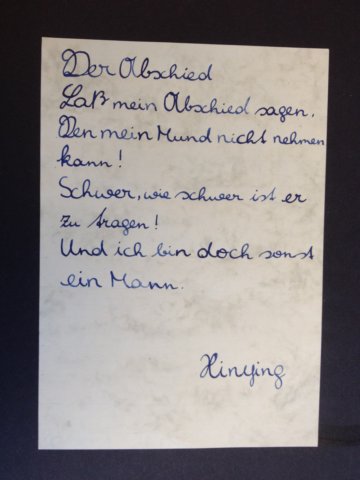 Der Abschied
Laß mein Abschied sagen,
Den mein Mund nicht nehmen
kann!
Schwer, wie schwer ist er
zu tragen!
Und ich bin doch sonst
ein Mann.
Xinying